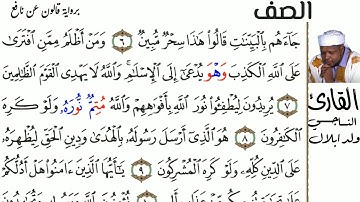 الصف
برواية قالون عن نافع
جَآءَهُم بِالْبَيِّنَٰتِ قَالُوا۟ هَٰذَا سِحْرٌ مُّبِينٌ ٦ وَمَنْ أَظْلَمُ مِمَّنِ اِفْتَر۪ىٰ
عَلَى اَللَّهِ اِلْكَذِبَ وَهْوَ يُدْعَىٰٓ إِلَى اَلْإِسْلَٰمِ وَاللَّهُ لَا يَهْدِى اِلْقَوْمَ اَلظَّٰلِمِينَ
٧ يُرِيدُونَ لِيُطْفِـُٔوا۟ نُورَ اَللَّهِ بِأَفْوَٰهِهِمْ وَاللَّهُ مُتِمٌّ نُورَهُۥ وَلَوْ كَرِهَ
اَلْكَٰفِرُونَ ٨ هُوَ اَلَّذِىٓ أَرْسَلَ رَسُولَهُۥ بِالْهُدَىٰ وَدِينِ اِلْحَقِّ لِيُظْهِرَهُۥ
عَلَى اَلدِّينِ كُلِّهِۦ وَلَوْ كَرِهَ اَلْمُشْرِكُونَ ٩ يَٰٓأَيُّهَا اَلَّذِينَ ءَامَنُوا۟ هَلَ اَدُلُّكُمْ
القارئ
الناجي
ولد ابلال